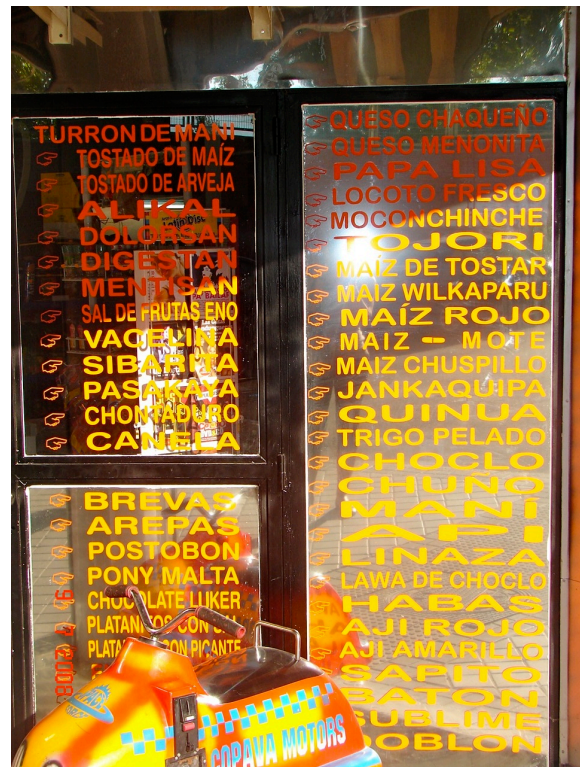 TURRON DE MANI
TOSTADO DE MAÍZ
TOSTADO DE ARVEJA
ALIKAL
DOLORSAN
DIGESTAN
MENTISAN
SAL DE FRUTAS ENO
VACELINA
SIBARITA
PASAKAYA
CHONTADURO
CANELA
BREVAS
AREPAS
POSTOBON
PONY MALTA
CHOCOLATE LUKER
CON
CON PICANTE
QUESO CHAQUEÑO
QUESO MENONITA
PAPA LISA
LOCOTO FRESCO
MOCONCHINCHE
TOJORI
MAÍZ DE TOSTAR
MAIZ WILKAPARU
MAÍZ ROJO
MAIZ - MOTE
MAIZ CHUSPILLO
JANKAQUIPA
QUINUA
TRIGO PELADO
CHOCLO
CHUÑO
MANÍ
API
LINAZA
LAWA DE CHOCLO
HABAS
AJI ROJO
AJI AMARILLO
SAPITO
BATON
SUBLIME
DOBLON
COPAVA MOTORS